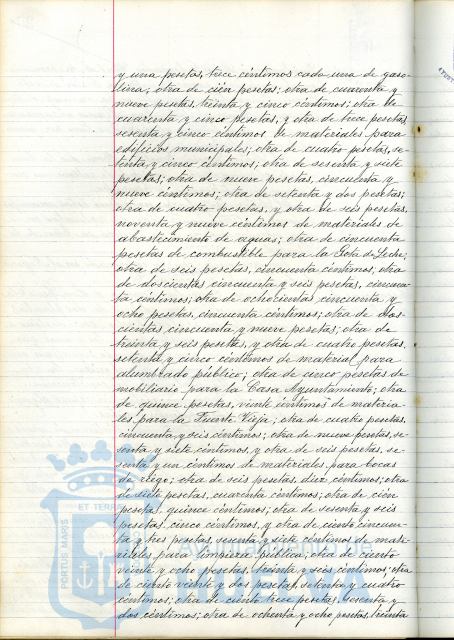 y una pesetas, trece céntimos cada una de gaso-
lina; otra de cien pesetas; otra de cuarenta y
nueve pesetas, treinta y cinco céntimos; otra de
cuarenta y cinco pesetas, y otra de trece pesetas
sesenta y cinco céntimos de materiales para
edificios municipales; otra de cuatro pesetas, se-
tenta y cinco céntimos; otra de sesenta y siete
pesetas; otra de nueve pesetas, cincuenta y
nueve céntimos; otra de setenta y dos pesetas;
otra de cuatro pesetas, y otra de seis pesetas,
noventa y nueve céntimos de materiales de
abastecimiento de aguas; otra de cincuenta
pesetas de combustible para la Gota de Leche;
otra de seis pesetas, cincuenta céntimos; otra
de doscientas cincuenta y seis pesetas, cincuen-
ta céntimos; otra de ochocientas cincuenta y
ocho pesetas, cincuenta céntimos; otra de dos
cientas cincuenta y nueve pesetas; otra de
treinta y seis pesetas, y otra de cuatro pesetas,
setenta y cinco céntimos de material para
alumbrado público; otra de cinco pesetas de
mobiliario para la Casa Ayuntamiento; otra
de quince pesetas, veinte céntimos de materia-
les para la Fuente Vieja; otra de cuatro pesetas,
cincuenta y seis céntimos; otra de nueve pesetas, se-
senta y siete céntimos, y otra de seis pesetas, se-
senta y un céntimos de materiales para bocas
de riego; otra de seis pesetas, diez céntimos; otra
de siete pesetas, cuarenta céntimos; otra de cien
pesetas, quince céntimos; otra de sesenta y seis
pesetas, cinco céntimos, y otra de ciento cincuen-
ta y tres pesetas, sesenta y siete céntimos de mate-
riales para limpieza pública; otra de ciento
veinte y ocho pesetas, treinta y seis céntimos; otra
de ciento veinte y dos pesetas, setenta y cuatro
céntimos; otra de ciento trece pesetas, sesenta y
dos céntimos; otra de ochenta y ocho pesetas, treinta
PORTUS MARIS
ET TERRA